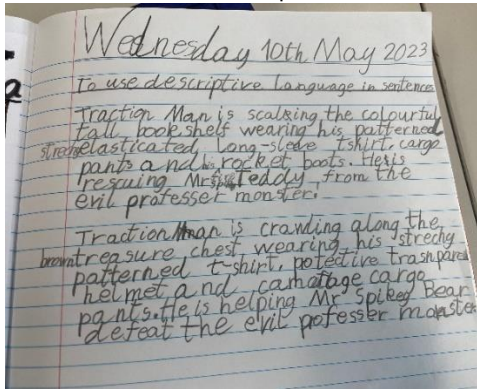 Wednesday 10th May 2023
To use descriptive language in sentences
Traction Man is scalring the colourful
tall bookshelf wearing his patterned
strechy elasticated long-sleve tshirt, cargo
pants and his rocket boots. He is
rescuing Mr Teddy from the
evil professer monster.
Traction Man is crawling along the
brown treasure chest wearing his strechy
patterned t-shirt, potective trasnparent
helmet and camoflage cargo
pants. He is helping Mr Spikey Bear
defeat the evil pofesser monster